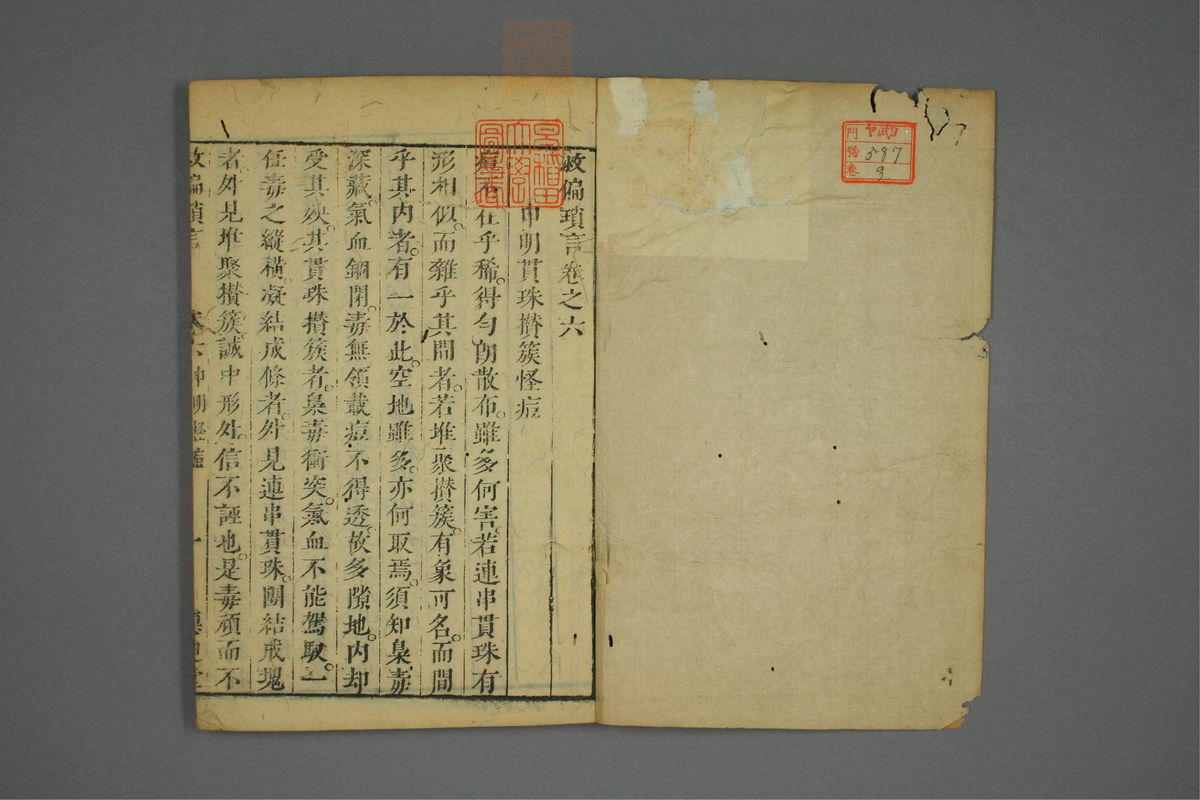 ヤ武9
門
號 597
卷 9
救偏瑣言卷之六
申明貫珠攅簇怪痘
痘不在乎稀。得勻朗散布。雖多何害。若連串貫珠有
形相似。而雜乎其間者。若堆聚攅簇。有象可名。而間
乎其内者。有一於此。空地雖多。亦何取焉。須知梟毒
深藏。氣血錮閉。毒無領載。痘不得透。故多隙地。内却
受其殃。其貫珠攅簇者。梟毒衝突。氣血不能駕馭。一
任毒之縱橫。凝結成條者。外見連串貫珠。團結成塊
者。外見堆聚攅簇。誠中形外。信不誣也。是毒頑而不
救偏瑣言 卷六 申明 一